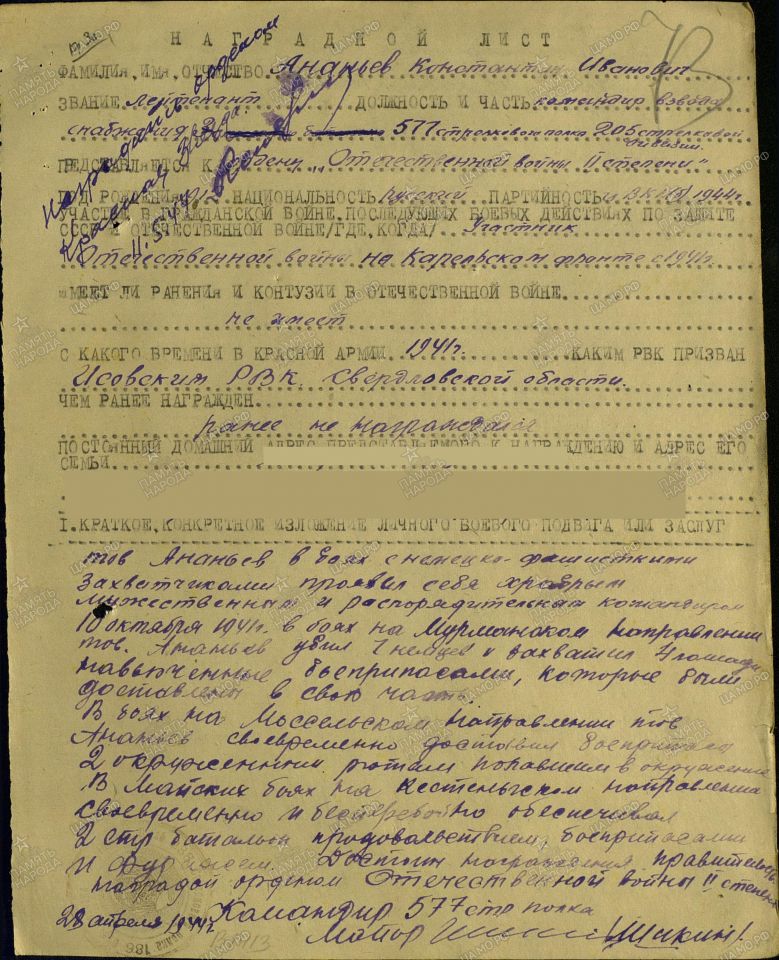 НАГРАДНОЙ ЛИСТ
ФАМИЛИЯ, ИМЯ, ОТЧЕСТВО Ананьев Константин Иванович
ЗВАНИЕ лейтенант ДОЛЖНОСТЬ И ЧАСТЬ командир взвода
снабжения 577 стрелкового полка 205 стрелковой
дивизии.
ПРЕДСТАВЛЯЕТСЯ К ордену „Отечественной войны II степени"
ГОД РОЖДЕНИЯ НАЦИОНАЛЬНОСТЬ русский ПАРТИЙНОСТЬ ВКП(б) 1944г.
УЧАСТИЕ В ГРАЖДАНСКОЙ ВОЙНЕ, ПОСЛЕДУЮЩИХ БОЕВЫХ ДЕЙСТВИЯХ ПО ЗАЩИТЕ
СССР И ОТЕЧЕСТВЕННОЙ ВОЙНЕ/ГДЕ, КОГДА/ Участник
Отечественной войны на Карельском фронте с 1941г.
ИМЕЕТ ЛИ РАНЕНИЯ И КОНТУЗИИ В ОТЕЧЕСТВЕННОЙ ВОЙНЕ
не имеет
С КАКОГО ВРЕМЕНИ В КРАСНОЙ АРМИИ 1941г. КАКИМ РВК ПРИЗВАН
Исовским РВК Свердловской области.
ЧЕМ РАНЕЕ НАГРАЖДЕН
ранее не награждался
ПОСТОЯННЫЙ ДОМАШНИЙ АДРЕС ПРЕДСТАВЛЯЕМОГО К НАГРАЖДЕНИЮ И АДРЕС ЕГО
СЕМЬИ
I. КРАТКОЕ, КОНКРЕТНОЕ ИЗЛОЖЕНИЕ ЛИЧНОГО БОЕВОГО ПОДВИГА ИЛИ ЗАСЛУГ
тов Ананьев в боях с немецко-фашисткими
захватчиками проявил себя храбрым
мужественным и распорядительным командиром
10 октября 1941г. в боях на Мурманском направлении
тов. Ананьев убил 7 немцев и захватил 4 лошади
навьюченные боеприпасами, которые были
доставлены в свою часть.
В боях на Массельском направлении тов
Ананьев своевременно доставил боеприпасы
2 окруженным ротам попавшим в окружение
В Майских боях на Кестеньгском направлении
своевременно и бесперебойно обеспечивал
2 стр батальон продовольствием, боеприпасами
и фуражем. Достоин награждения правительств
наградой орденом Отечественной войны II степени
28 апреля 1944г. Командир 577 стр полка
Майор /Шикин/.
Награжден орденом
Красная Звезда